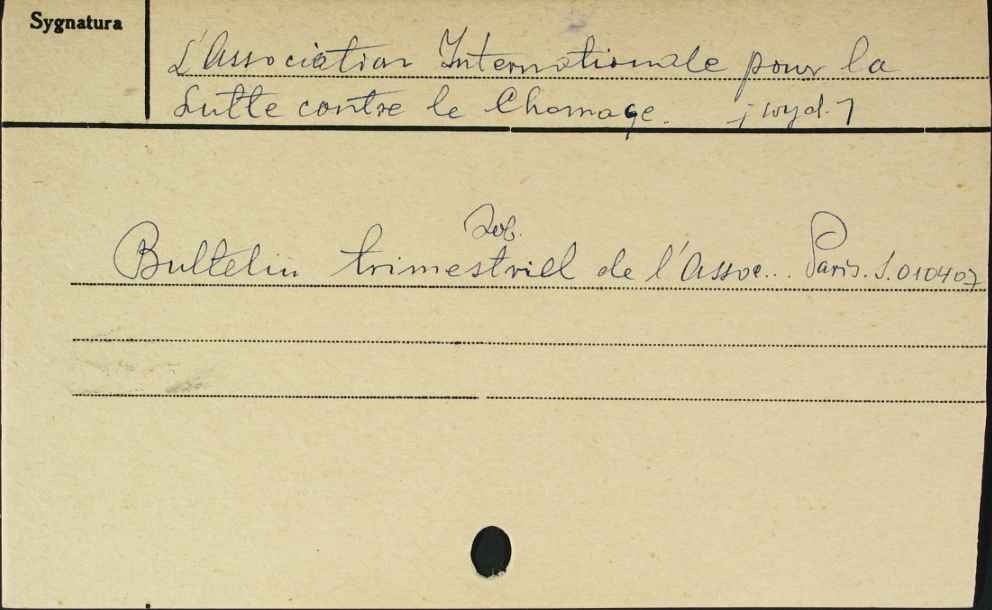 Sygnatura
L'Association Internationale pour la
Lutte contre le Chomage. [wyd.]
Zob.
Bulletin trimestriel de l'Assoc... Paris. S.010407